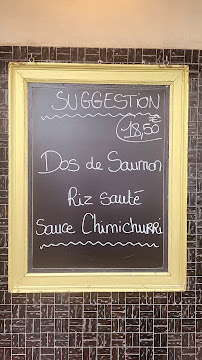 SUGGESTION
18,50 €
Dos de Saumon
Riz sauté
Sauce Chimichurri